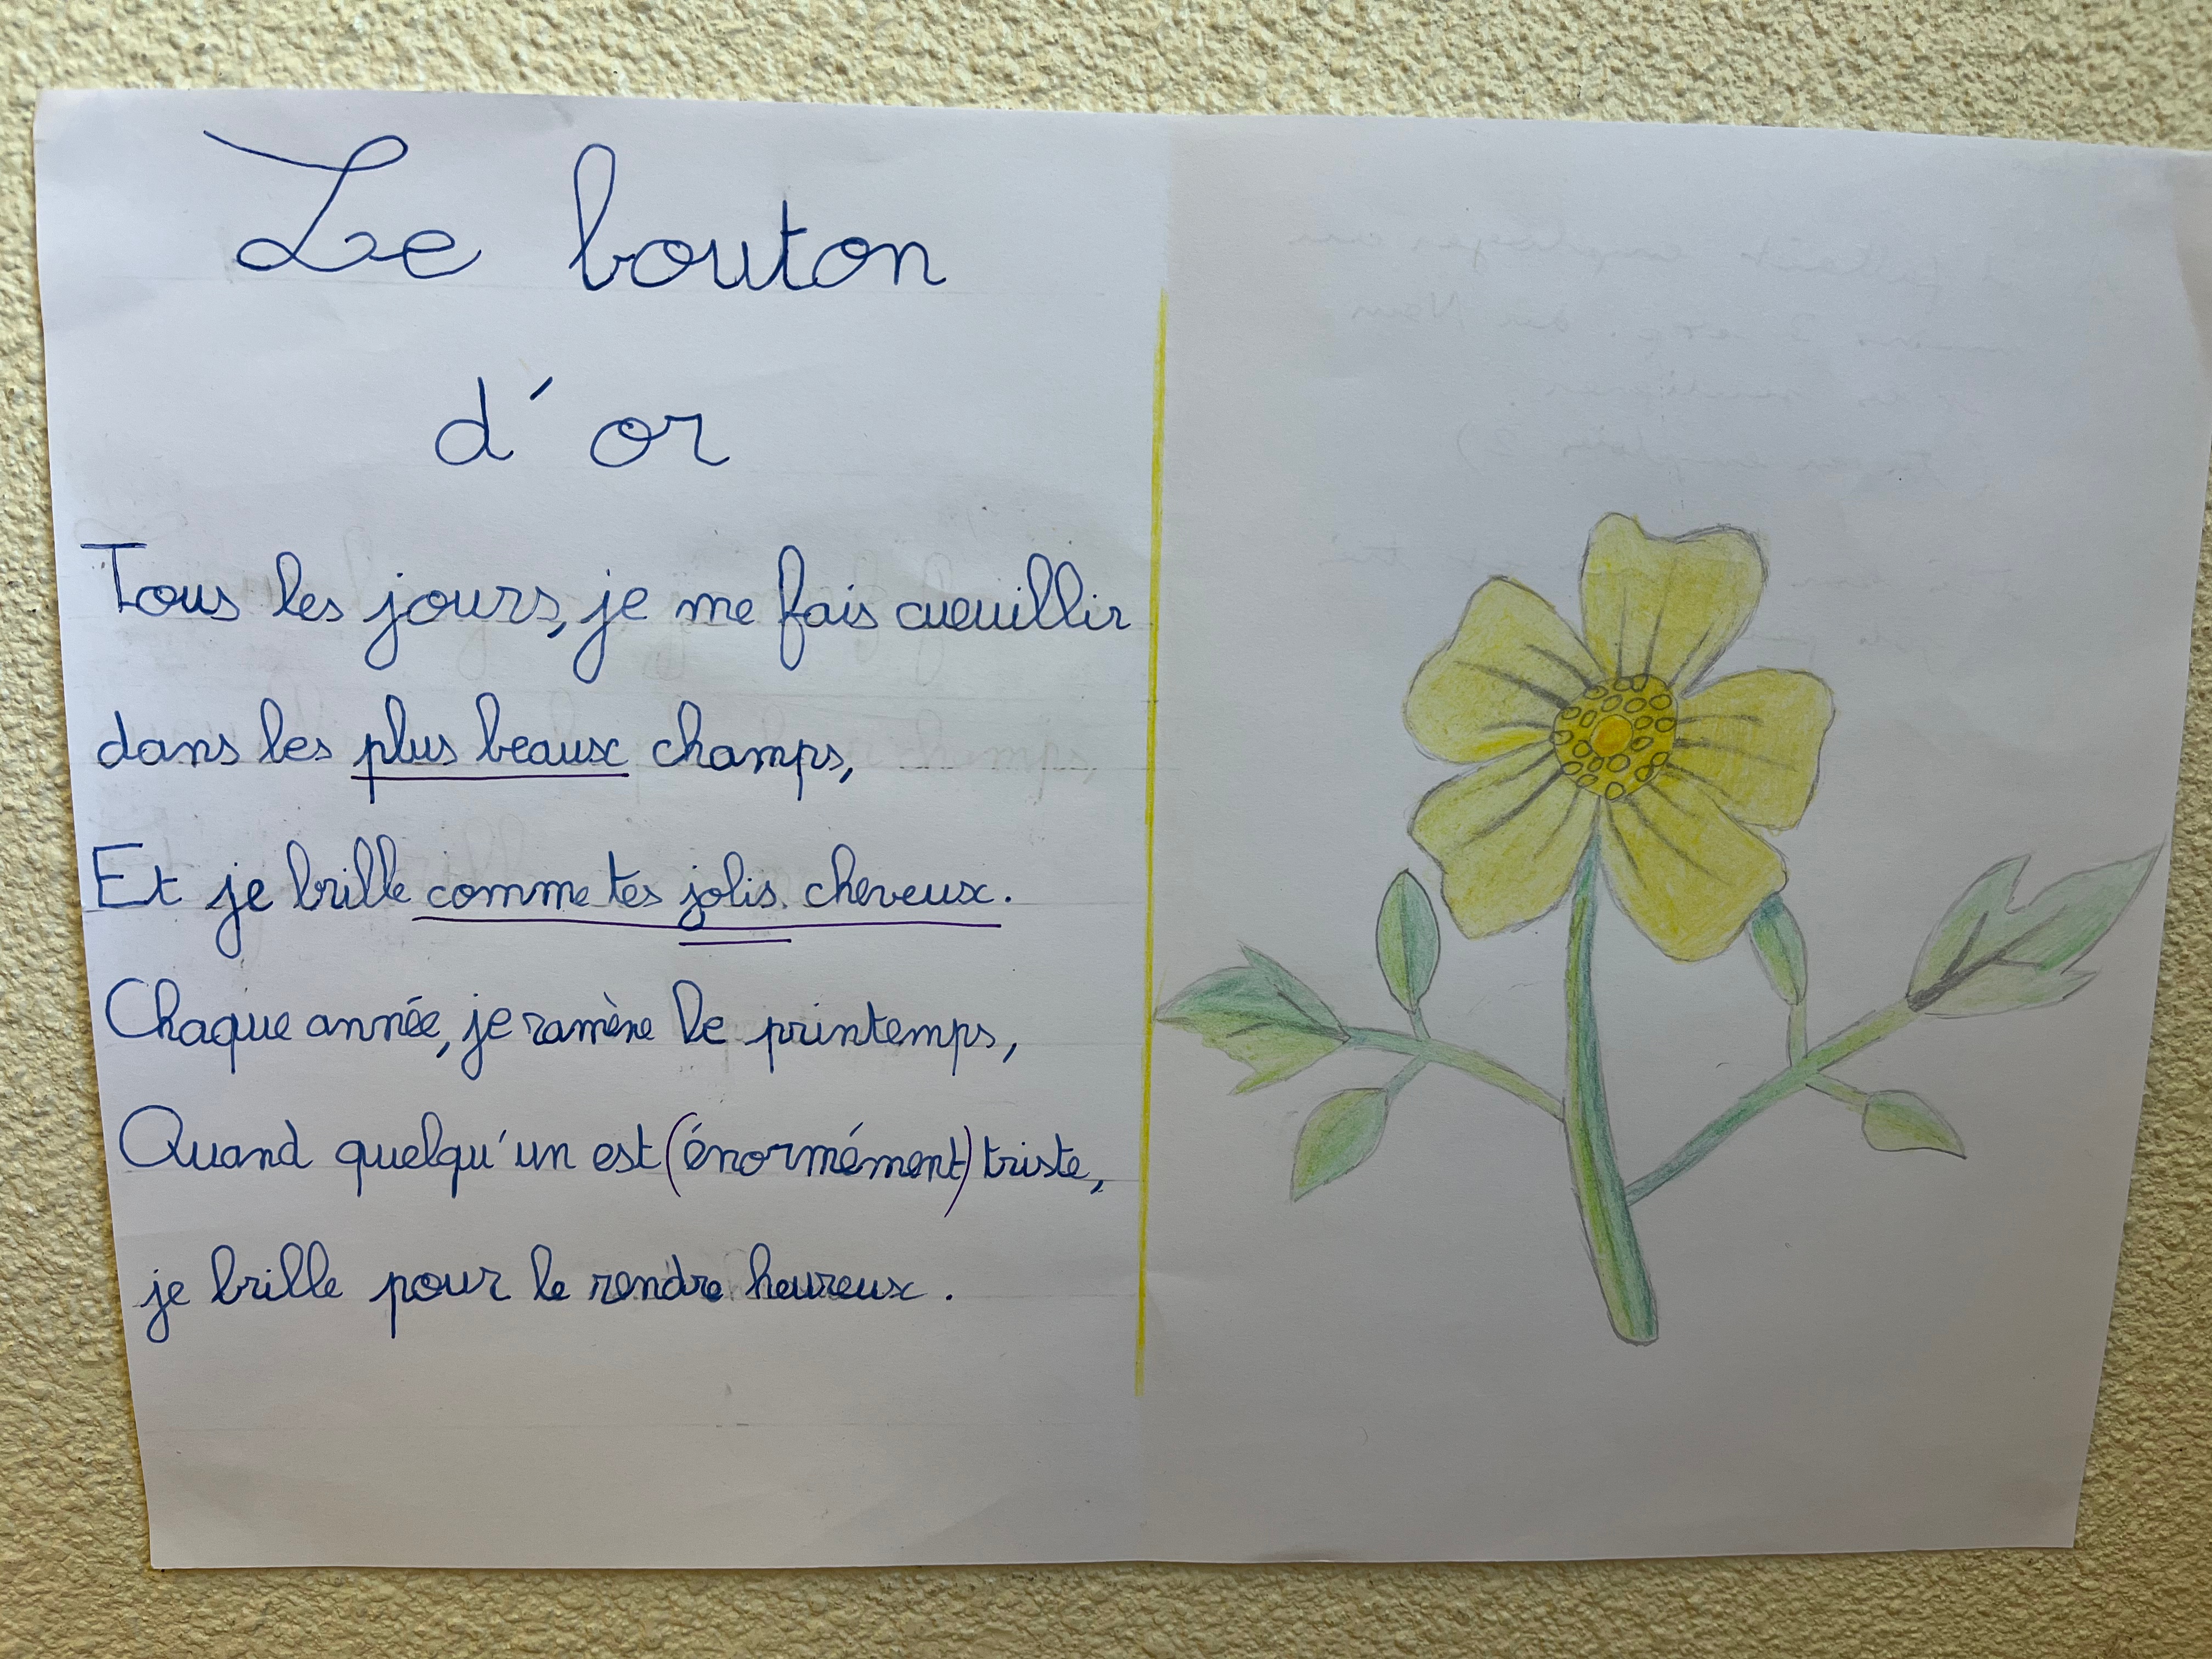 Le bouton
d'or
Tous les jours, je me fais cueuillir
dans les plus beaux champs,
Et je brille comme tes jolis cheveux.
Chaque année, je ramène le printemps,
Quand quelqu'un est (énormément) triste,
je brille pour le rendre heureux.